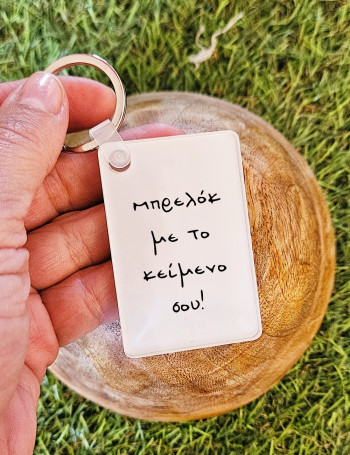 μπρελόκ
με το
κείμενο
σου!